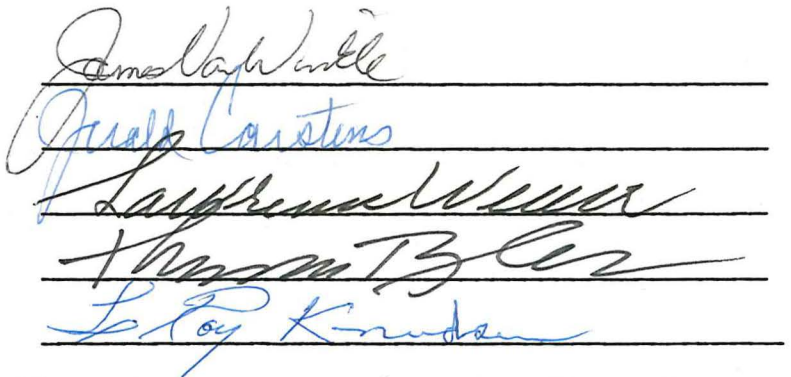 James Van Winkle
Jerald Carstens
Lawrence
Thomas
LeRoy Knudsen